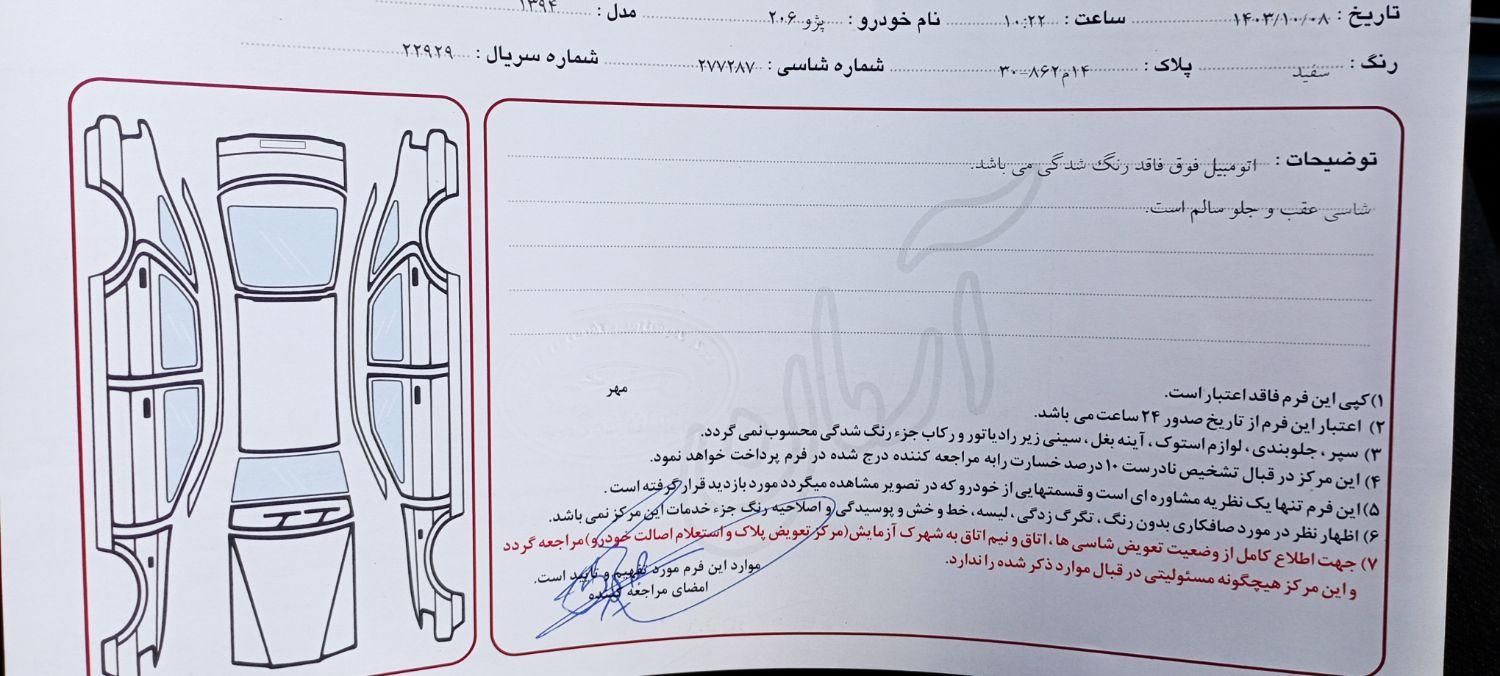 تاریخ : ۱۴۰۳/۱۰/۰۸ ساعت : ۱۰:۲۲ نام خودرو : پژو ۲۰۶ مدل : ۱۳۹۴
رنگ : سفید پلاک : ۱۴م۸۶۲-۳۰ شماره شاسی : ۲۷۷۲۸۷ شماره سریال : ۲۲۹۲۹
توضیحات : اتومبیل فوق فاقد رنگ شدگی می باشد.
شاسی عقب و جلو سالم است.
مهر
۱) کپی این فرم فاقد اعتبار است.
۲) اعتبار این فرم از تاریخ صدور ۲۴ ساعت می باشد.
۳) سپر ، جلوبندی ، لوازم استوک ، آینه بغل ، سینی زیر رادیاتور و رکاب جزء رنگ شدگی محسوب نمی گردد.
۴) این مرکز در قبال تشخیص نادرست ۱۰ درصد خسارت را به مراجعه کننده درج شده در فرم پرداخت خواهد نمود.
۵) این فرم تنها یک نظریه مشاوره ای است و قسمتهایی از خودرو که در تصویر مشاهده میگردد مورد بازدید قرار گرفته است.
۶) اظهار نظر در مورد صافکاری بدون رنگ ، تگرگ زدگی ، لیسه ، خط و خش و پوسیدگی و اصلاحیه رنگ جزء خدمات این مرکز نمی باشد.
۷) جهت اطلاع کامل از وضعیت تعویض شاسی ها ، اتاق و نیم اتاق به شهرک آزمایش (مرکز تعویض پلاک و استعلام اصالت خودرو) مراجعه گردد
و این مرکز هیچگونه مسئولیتی در قبال موارد ذکر شده را ندارد.
موارد این فرم مورد تفهیم و تایید است.
امضای مراجعه کننده